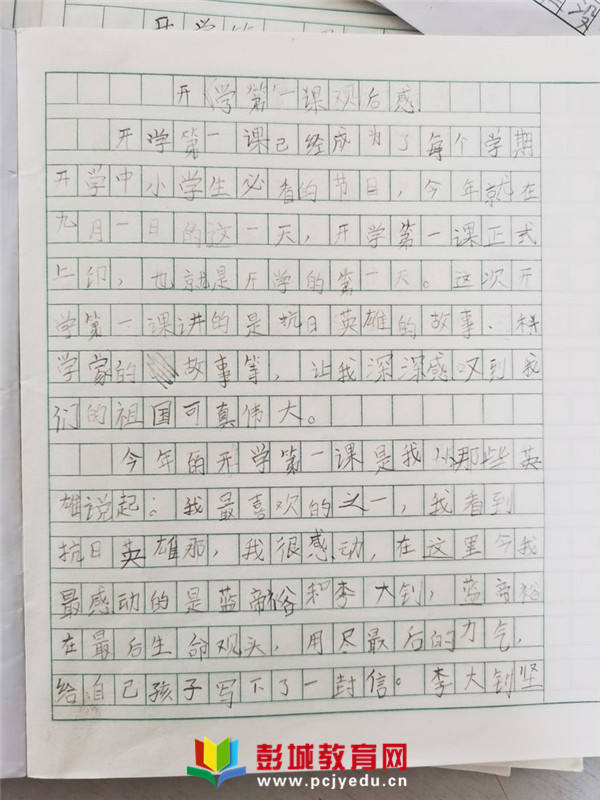 开学第一课观后感
开学第一课已经成为了每个学期
开学中小学生必看的节目，今年就在
九月一日的这一天，开学第一课正式
上印，也就是开学的第一天。这次开
学第一课讲的是抗日英雄的故事、科
学家的故事等，让我深深感叹到我
们的祖国可真伟大。
今年的开学第一课是我从那些英
雄说起。我最喜欢的之一，我看到
抗日英雄那，我很感动，在这里令我
最感动的是蓝帝裕和李大钊，蓝帝裕
在最后生命观头，用尽最后的力气，
给自己孩子写下了一封信。李大钊坚
彭城教育网
www.pcjyedu.cn